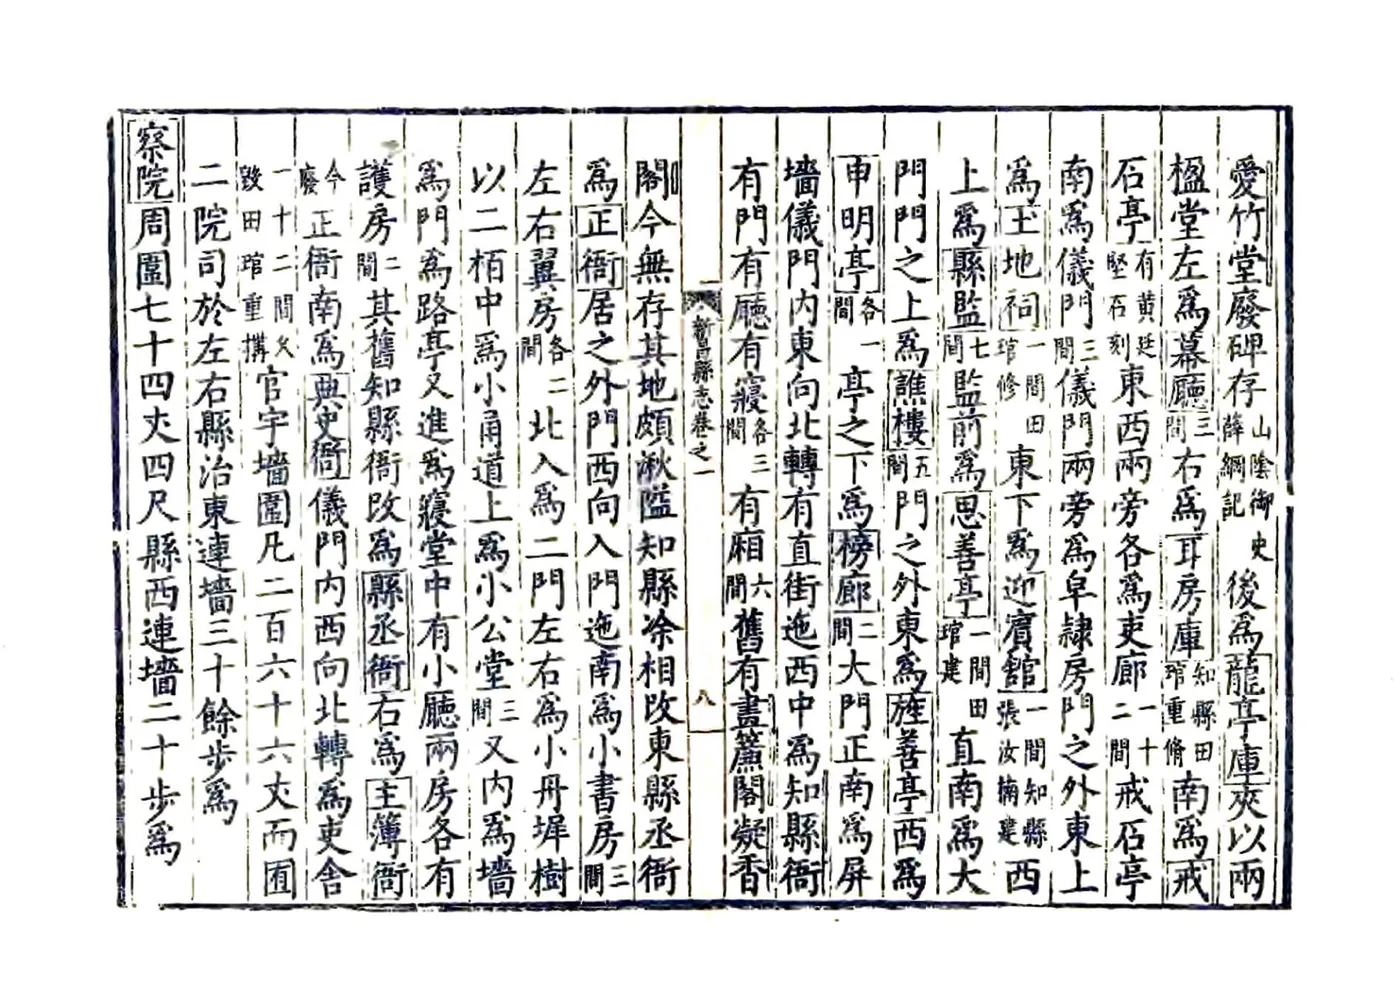 愛竹堂廢碑存山陰御史薛綱記後爲龍亭庫夾以兩
楹堂左爲幕廳三間右爲耳房庫知縣田琯重脩南爲戒
石亭有黄廷堅石刻東西兩旁各爲吏廊一十二間戒石亭
南爲儀門三間儀門兩旁爲皁隷房門之外東上
爲土地祠一間田琯修東下爲迎賓舘一間知縣張汝楠建西
上爲縣監七間監前爲思善亭一間田琯建直南爲大
門門之上爲譙樓五間門之外東爲旌善亭西爲
申明亭各一間亭之下爲榜廊二間大門正南爲屏
墻儀門内東向北轉有直街迤西中爲知縣衙
有門有廳有寢各三間有廂六間舊有畫簾閣凝香
新昌縣志卷之一
八
閣今無存其地頗湫隘知縣凃相改東縣丞衙
爲正衙居之外門西向入門迤南爲小書房三間
左右翼房各二間北入爲二門左右爲小丹墀樹
以二栢中爲小甬道上爲小公堂三間又内爲墻
爲門爲路亭又進爲寢堂中有小廳兩房各有
護房二間其舊知縣衙改爲縣丞衙右爲主簿衙
今廢正衙南爲典史衙儀門内西向北轉爲吏舍
一十二間久毀田琯重搆官宇墻圍凡二百六十六丈而囿
二院司於左右縣治東連墻三十餘步爲
察院周圍七十四丈四尺縣西連墻二十步爲